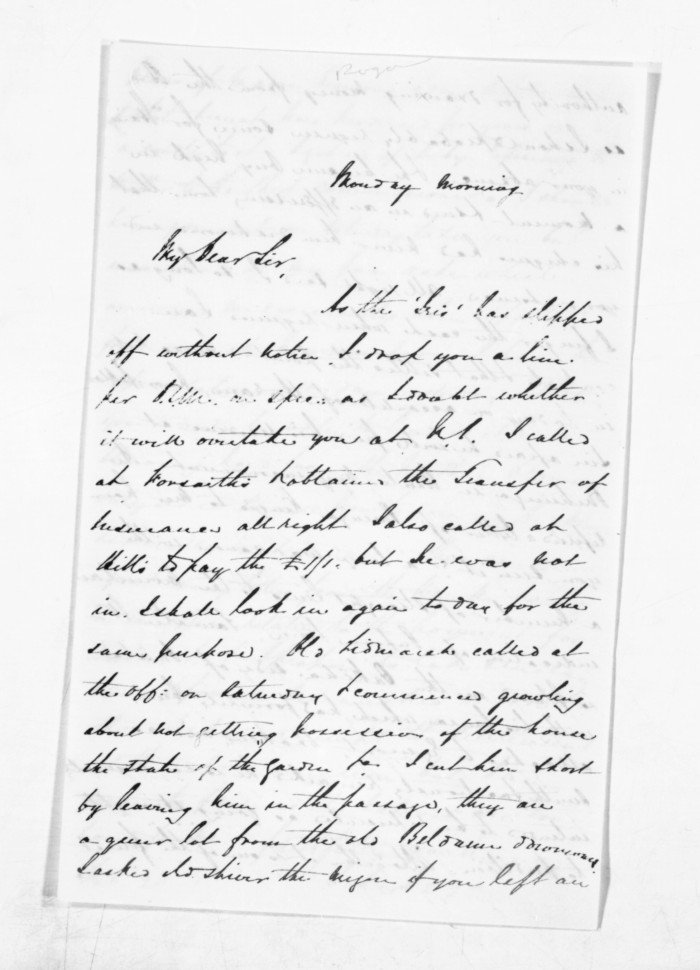 Roger
Monday morning
My Dear Sir,
As the 'Iris' has slipped
off without notice I drop you a line
per on spec: as I doubt whether
it will overtake you at I called
at Forsaith's & obtained the Transfer of
Insurance all right I also called at
Hill's to pay the £1/1. but he was not
in. I shall look in again to day for the
same purpose. Old called at
the off: on Saturday & commenced growling
about not getting possession of the house
the state of the garden &c I cut him short
by leaving him in the passage, they are
a queer lot from the old Beldame downward.
I asked old shiver the if you left an